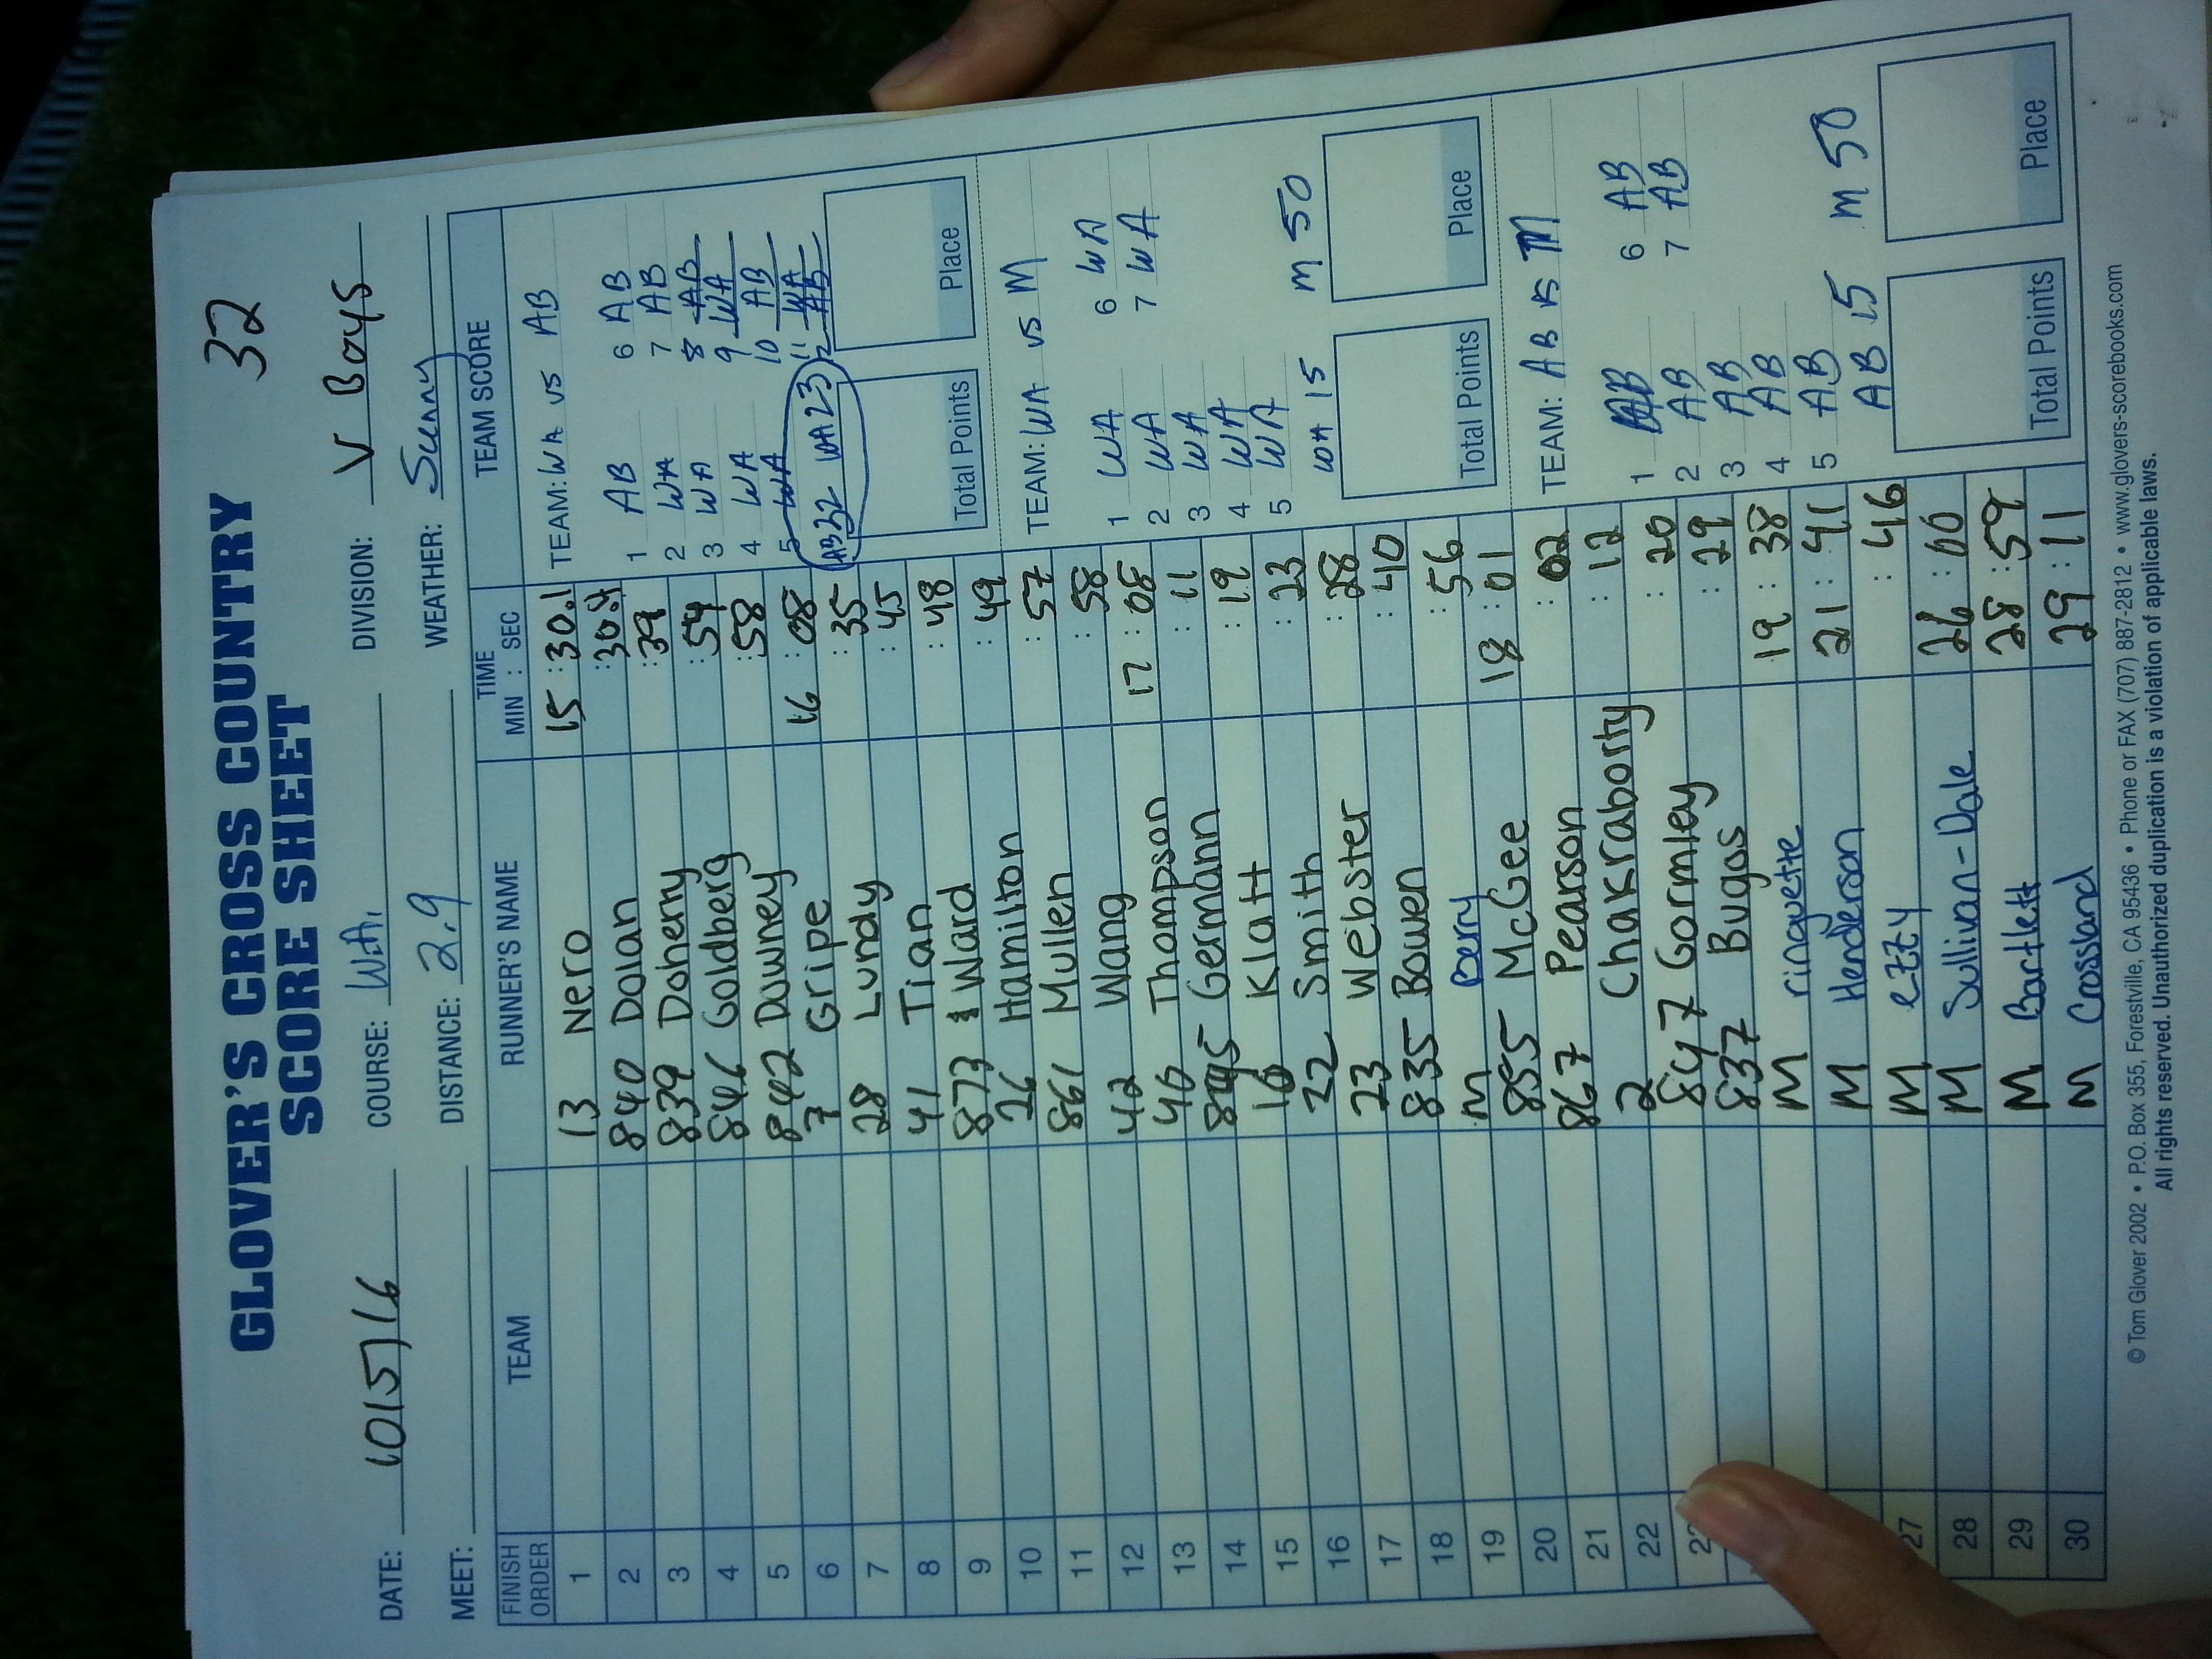 GLOVER'S CROSS COUNTRY
SCORE SHEET
32
DATE: 10/5/16 COURSE: W.A. DIVISION: V Boys
MEET: DISTANCE: 2.9 WEATHER: Sunny
FINISH ORDER TEAM RUNNER'S NAME TIME MIN : SEC TEAM SCORE
1 13 Nero 15 :30.1
2 840 Dolan :30.4
3 839 Doherry :39
4 846 Goldberg :54
5 842 Downey :58
6 7 Gripe 16 :08
7 28 Lundy :35
8 41 Tian :45
9 873 Ward :48
10 26 Hamilton :49
11 861 Mullen :57
12 42 Wang :58
13 40 Thompson 17 :08
14 Germann :11
15 16 Klatt :19
16 22 Smith :23
17 23 Webster :28
18 835 Bowen :40
19 M Berry :56
20 855 McGee 18 :01
21 867 Pearson :02
22 2 Chakraborty :12
23 847 Gormley :20
837 Bugos :29
M ringuette 19 : 38
M Henderson 21 : 41
27 M ezzy : 46
28 M Sullivan-Dale 26 :00
29 M Bartlett 28 :59
30 M Crossland 29 :11
TEAM: WA vs AB
1 AB 6 AB
2 WA 7 AB
3 WA 8 AB
4 WA 9 WA
5 WA 10 AB
11 WA
AB
AB 32 WA 23
Total Points Place
TEAM: WA vs M
1 WA 6 WA
2 WA 7 WA
3 WA
4 WA
5 WA
WA 15 M 50
Total Points Place
TEAM: AB vs M
1 AB 6 AB
2 AB 7 AB
3 AB
4 AB
5 AB
AB 15 M 50
Total Points Place
© Tom Glover 2002 • P.O. Box 355, Forestville, CA 95436 • Phone or FAX (707) 887-2812 • www.glovers-scorebooks.com
All rights reserved. Unauthorized duplication is a violation of applicable laws.